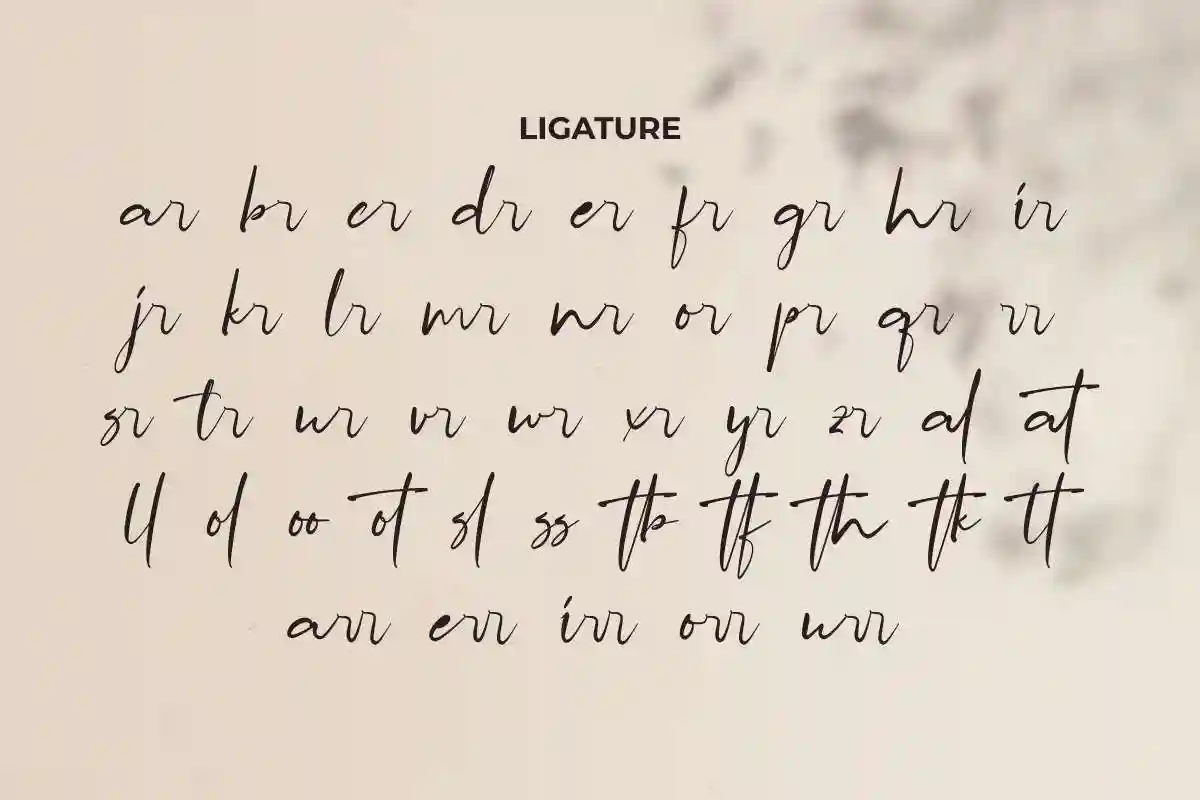 LIGATURE
ar br cr dr er fr gr hr ir
jr kr lr mr nr or pr qr rr
sr tr ur vr wr xr yr zr al at
ll ol oo ot sl ss tb tf th tk tt
arr err irr orr urr